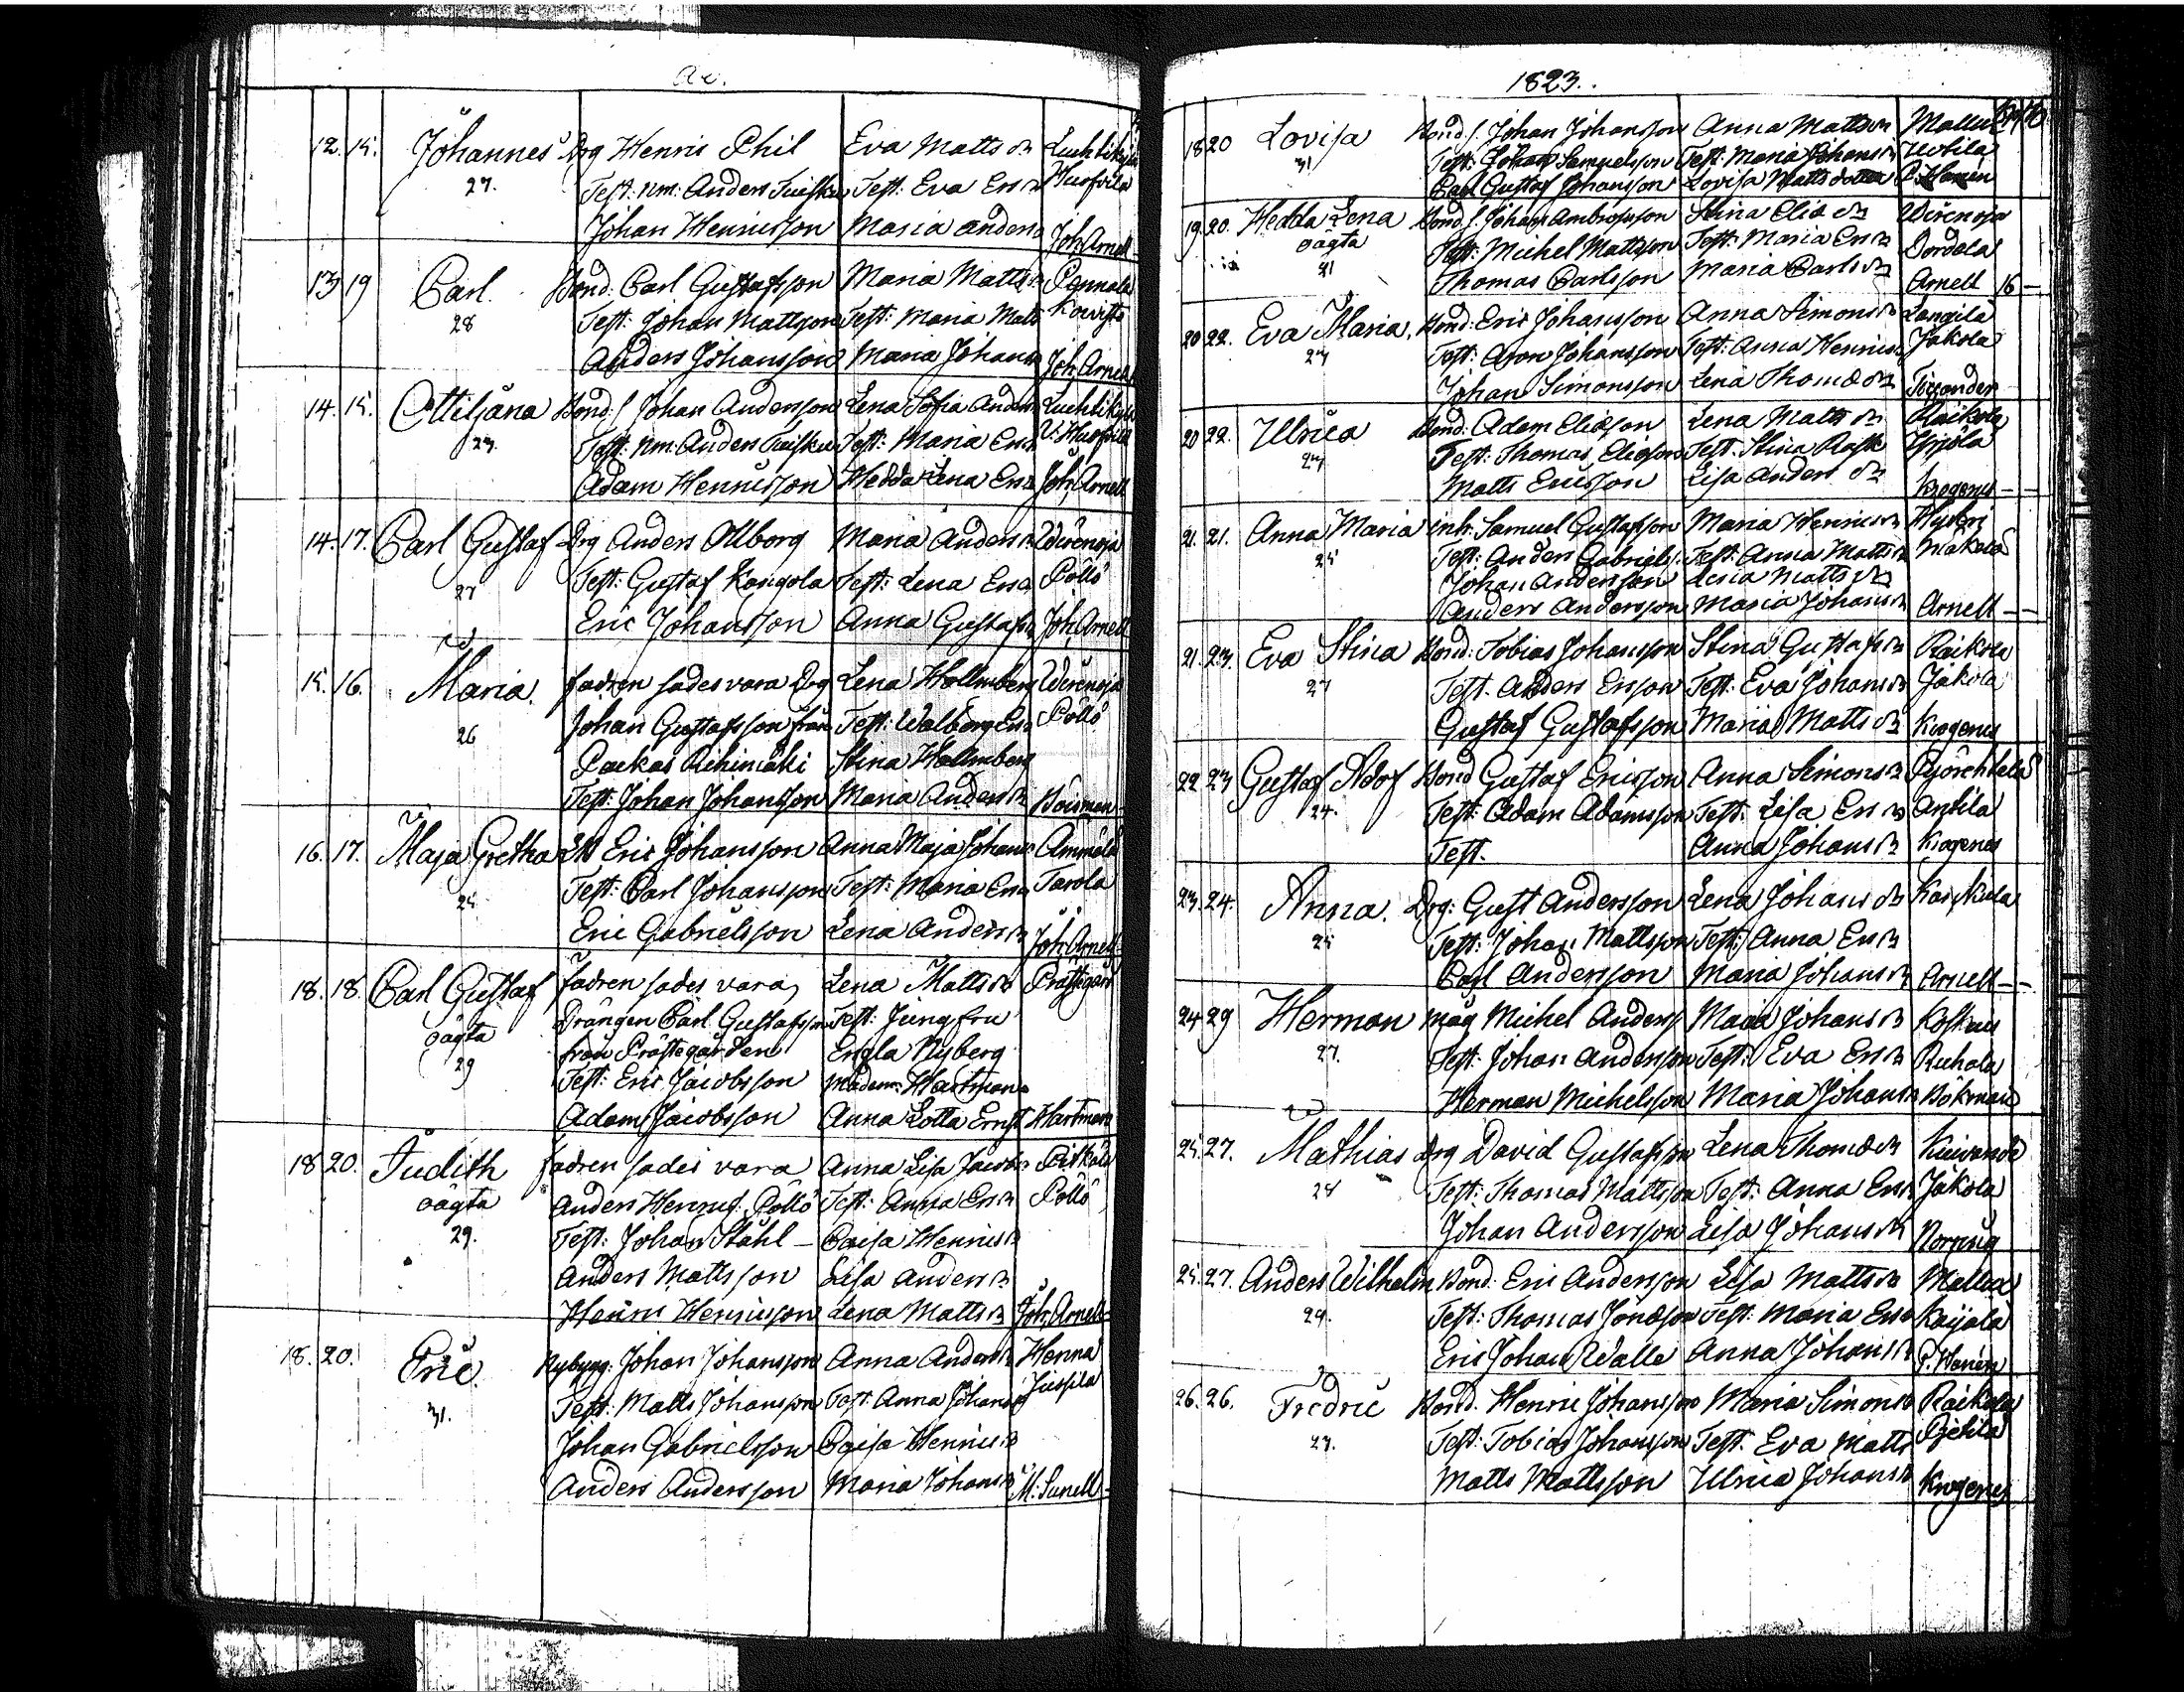 1823.
12. 14. Johannes Drg Henric Phil Eva Matts dr Luchtikylä
27. Test. nm: Anders Test: Eva Ers dr Husfvila
Johan Henricsson Maria Anders Joh. Arnell
13 19 Carl. Bond: Carl Gustafsson Maria Matts dr Pennala
28 Test: Johan Mattsson Test: Maria Matts Kowisto
Anders Johansson Maria Johans Joh. Arnell
14. 15. Ottiljana Bond. s. Johan Andersson Lena Sofia Anders Luchtikylä
27. Test. nm. Anders Test: Maria Ers
Adam Henricsson Hedda Lena Ers Joh. Arnell
14. 17. Carl Gustaf Drg Anders Ollborg Maria Anders dr Wirenoja
27 Test: Gustaf Kangola Test: Lena Ers Pöllö
Eric Johansson Anna Gustafs Joh. Arnell
15. 16. Maria. fadren sades vara Drg Lena Hollmberg Wirenoja
26 Johan Gustafsson från Test: Walborg Ers Pöllö
Paekas Rihimäki Stina Hollmberg
Test: Johan Johansson Maria Anders dr
16. 17. Maja Gretha Eric Johansson Anna Maja Johans Ammälä
Test: Carl Johansson Test: Maria Ers Tarola
Eric Gabrielsson Lena Anders dr Joh. Arnell
18. 18. Carl Gustaf fadren sades vara Lena Matts dr Prästegård
oägta Drängen Carl Gustafsson Test: Jungfru
29 från Prästegården Engla Nyberg
Test: Eric Jacobsson Madam: Hartman
Adam Jacobsson Anna Lotta Ernst Hartman
18 20. Judith fadren sades vara Anna Lisa Jacobs
oägta Anders Henrics: Pöllö Test: Anna Ers dr Pöllö
29. Test: Johan Ståhl Caisa Henrics dr
Anders Mattsson Lisa Anders dr
Henric Henricsson Lena Matts dr Joh. Arnell
18. 20. Eric. Nybygg: Johan Johansson Anna Anders dr Henna
31. Test: Matts Johansson Test: Anna Johans Jussila
Johan Gabrielsson Caisa Henrics dr
Anders Andersson Maria Johans dr M. Sunell
18 20 Lovisa Bond. s. Johan Johansson Anna Matts dr
31 Test: Johan Samuelsson Test: Maria Johans dr Uotila
Carl Gustaf Johansson Lovisa Matts dotter
19. 20. Hedda Lena Bond s. Johan Ambrosson Stina Eliæ dr Wirenoja
oägta Test: Michel Mattsson Test: Maria Ers dr Dordola
31 Thomas Carlsson Maria Carls dr Arnell 16
20 22. Eva Maria. Bond: Eric Johansson Anna Simons dr Langila
27 Test: Aron Johansson Test: Anna Henrics Jakola
Johan Simonsson Lena Thomæ dr
20 22. Ulrica Bond: Adam Eliæson Lena Matts dr Raikola
27 Test: Thomas Eliæson Test. Stina Rask Yrjölä
Matts Ericsson Lisa Anders dr Krogerus
21. 21. Anna Maria inh: Samuel Gustafsson Maria Henrics dr
25 Test: Anders Gabriels: Test: Anna Matts dr Mäkelä
Johan Andersson Lena Matts dr
Anders Andersson Maria Johans dr Arnell
21. 23. Eva Stina Bond: Tobias Johansson Stina Gustafs dr Raikola
27 Test. Anders Ersson Test: Eva Johans dr Jakola
Gustaf Gustafsson Maria Matts dr Krogerus
22 23 Gustaf Adorf Bond Gustaf Ericsson Anna Simons dr
24. Test: Adam Adamsson Test: Lisa Ers dr Antila
Test. Anna Johans dr Krogerus
23. 24. Anna. Drg: Gust Andersson Lena Johans dr
25 Test: Johan Mattsson Test: Anna Ers dr
Carl Andersson Maria Johans dr Arnell
24 29 Herman mag Michel Anders: Maria Johans dr
27. Test: Johan Andersson Test: Eva Ers dr Ruhala
Herman Michelsson Maria Johans Bökman
25. 27. Mathias Drg David Gustafsson Lena Thomæ dr
24 Test: Thomas Mattsson Test: Anna Ers Jakola
Johan Andersson Lisa Johans dr
25. 27. Anders Wilhelm Bond: Eric Andersson Lisa Matts dr
24. Test: Thomas Jonæson Test: Maria Ers
Eric Johan Walle Anna Johans dr
26. 26. Fredric Bond. Henric Johansson Maria Simons Raikola
27. Test: Tobias Johansson Test. Eva Matts
Matts Mattsson Ulrica Johans dr Krogerus